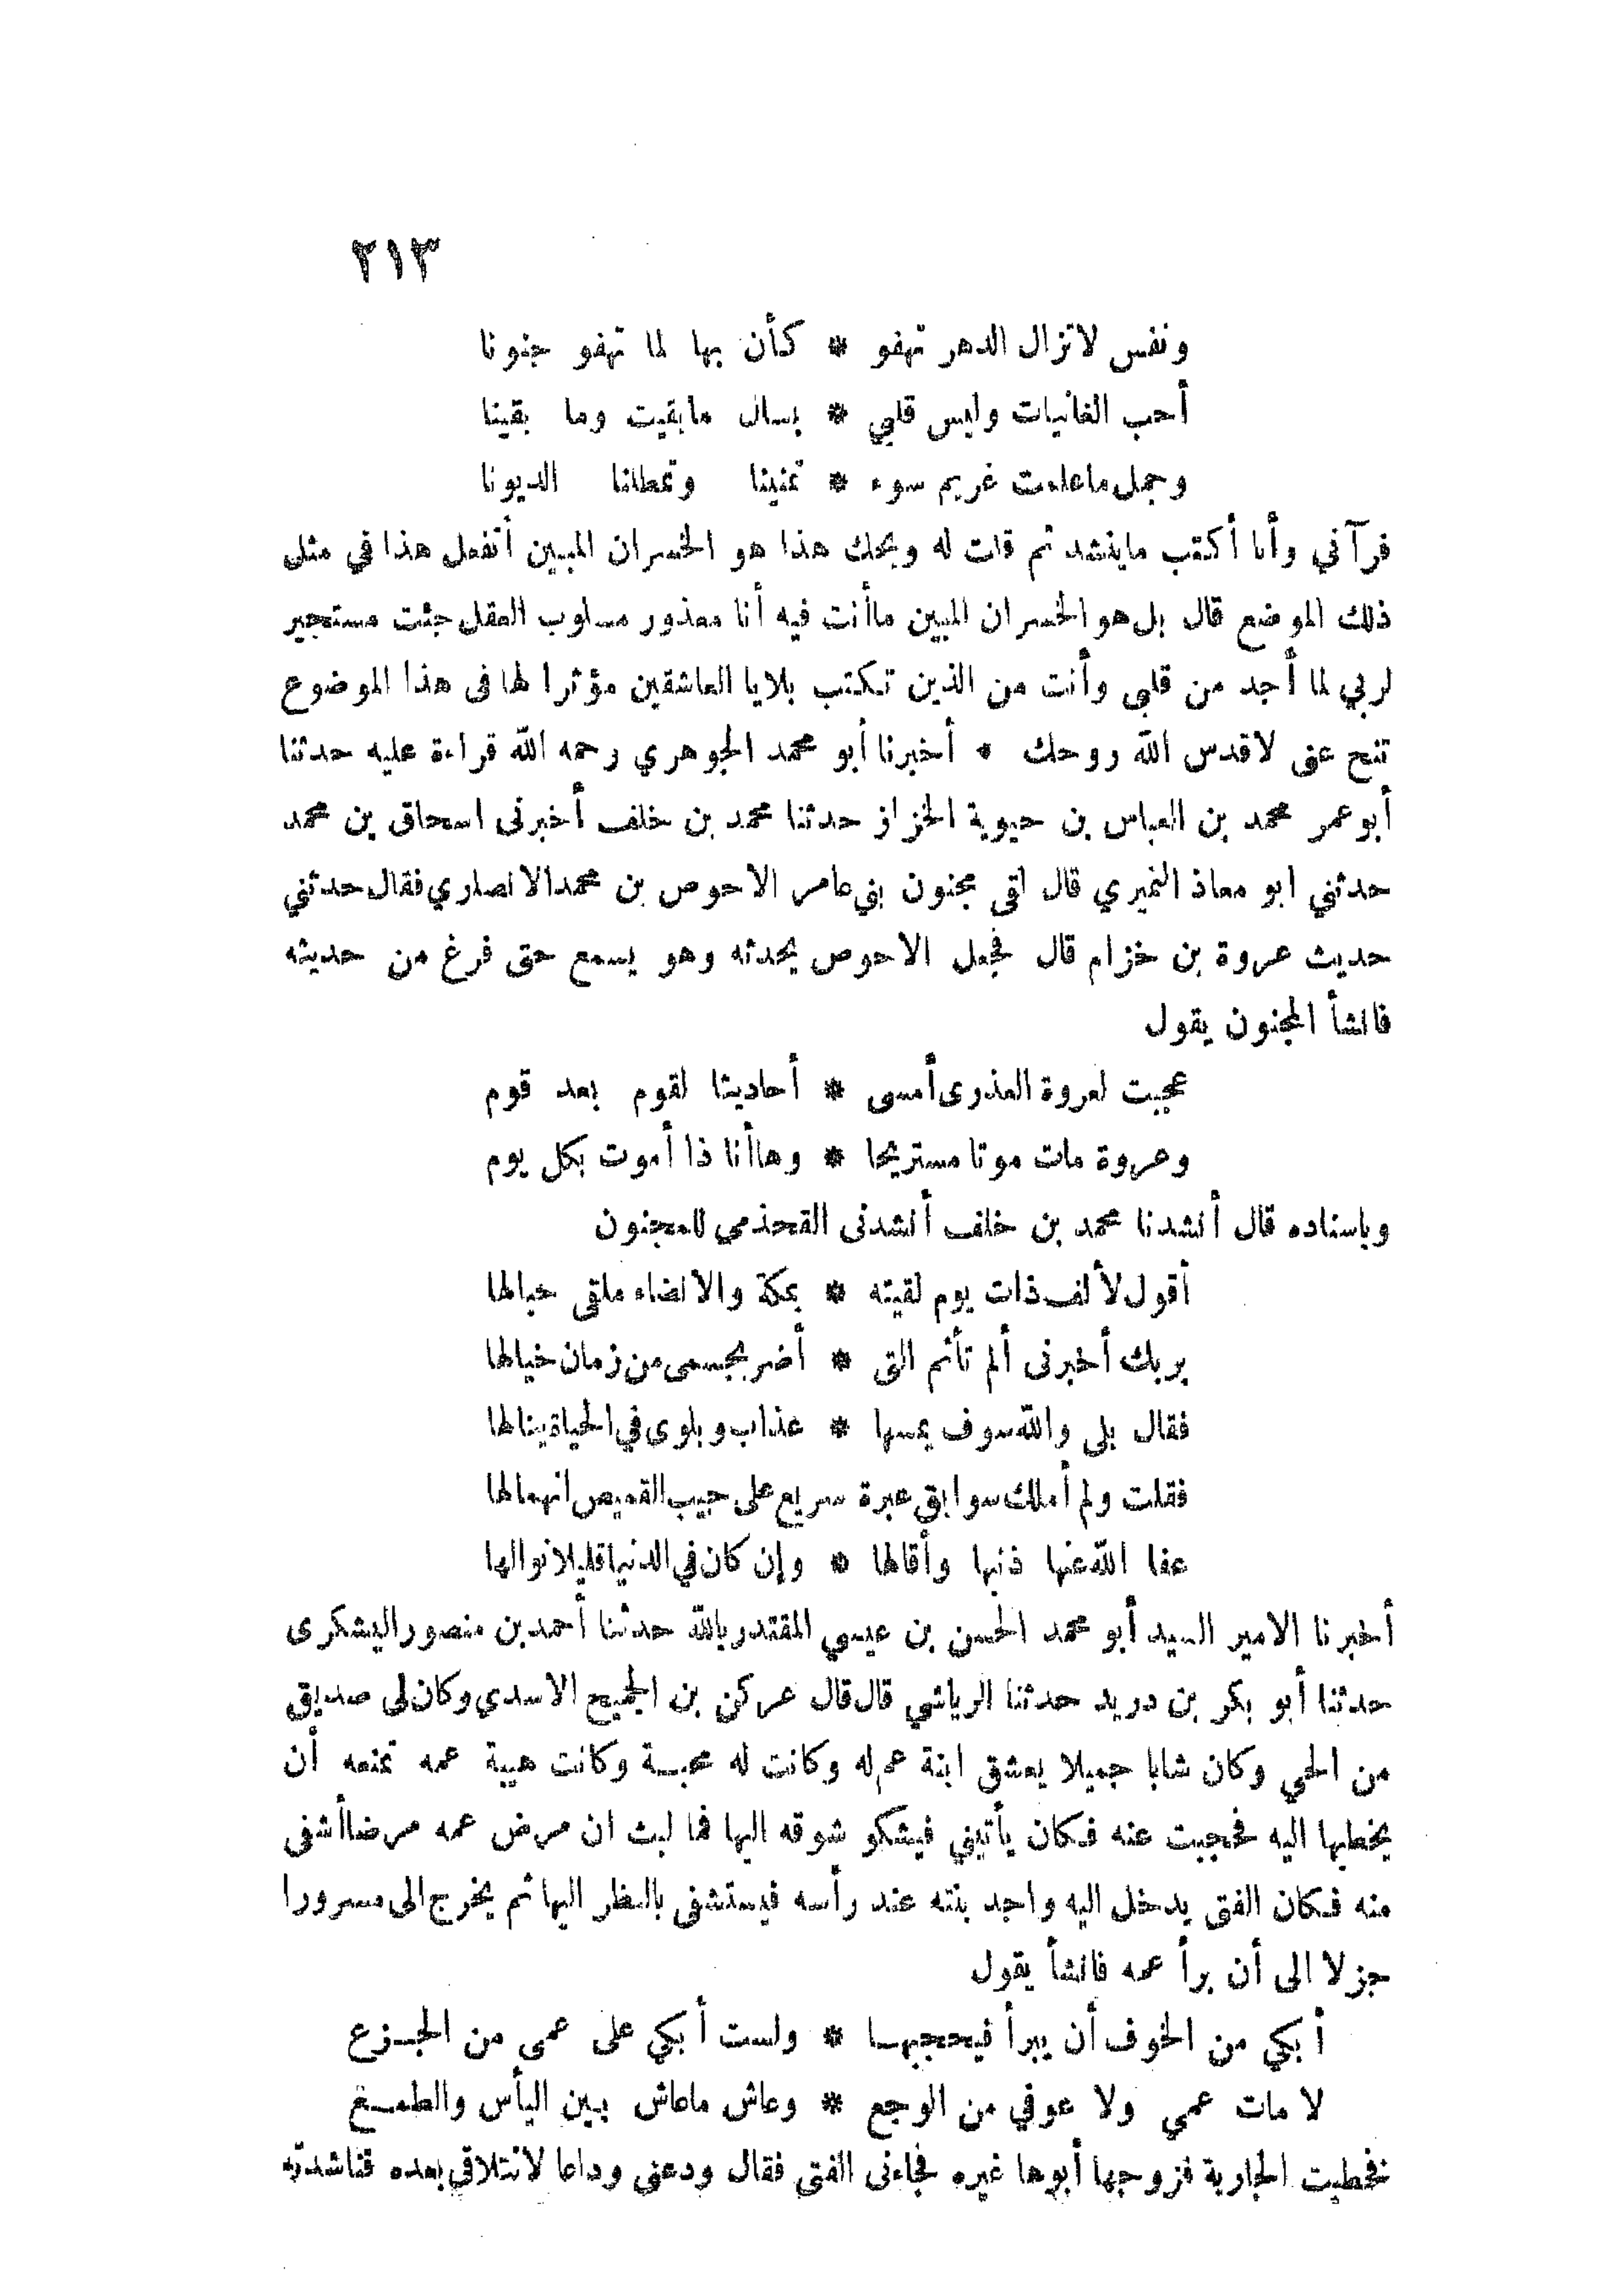 ٢١٣
ونفس لاتزال الدهر تهفو * كأن بها لما تهفو جنونا
أحب الغانيات وليس قلبي * بسال مابقيت وما بقينا
وجمل ماعلمت غريم سوء * تمنينا وتمطلنا الديونا
فرآني وأنا أكتب ماينشد ثم قلت له ويحك هذا هو الخسران المبين أتفعل هذا في مثل
ذلك الموضع قال بل هو الخسران المبين ماأنت فيه أنا معذور مسلوب العقل جئت مستجير
لربي لما أجد من قلبي وأنت من الذين تكتب بلايا العاشقين مؤثرا لها فى هذا الموضوع
تنح عنى لاقدس الله روحك * أخبرنا أبو محمد الجوهري رحمه الله قراءة عليه حدثنا
أبو عمر محمد بن العباس بن حيوية الخزاز حدثنا محمد بن خلف أخبرنى اسحاق بن محمد
حدثني ابو معاذ النميري قال لقى مجنون بني عامر الاحوص بن محمد الانصاري فقال حدثني
حديث عروة بن خزام قال فجعل الاحوص يحدثه وهو يسمع حتى فرغ من حديثه
فانشأ المجنون يقول
عجبت لعروة العذرى أمسى * أحاديثا لقوم بعد قوم
وعروة مات موتا مستريحا * وهاأنا ذا أموت بكل يوم
وباسناده قال أنشدنا محمد بن خلف أنشدنى القحذمي للمجنون
أقول لألف ذات يوم لقيته * بمكة والانضاء ملقى حبالها
بربك أخبرنى ألم تأثم التى * أضر بجسمى من زمان خيالها
فقال بلى والله سوف يمسها * عذاب وبلوى في الحياة ينالها
فقلت ولم أملك سوابق عبرة سريع على جيب القميص انهمالها
عفا الله عنها ذنبها وأقالها * وإن كان في الدنيا قليلا نوالها
أخبرنا الامير السيد أبو محمد الحسن بن عيسي المقتدر بالله حدثنا أحمد بن منصور اليشكرى
حدثنا أبو بكر بن دريد حدثنا الرياشي قال قال عركن بن الجميع الاسدي وكان لى صديق
من الحي وكان شابا جميلا يعشق ابنة عم له وكانت له محبة وكانت هيبة عمه تمنعه أن
يخطبها اليه فحجبت عنه فكان يأتيني فيشكو شوقه اليها فما لبث ان مرض عمه مرضاأشفى
منه فكان الفتى يدخل اليه واجد بنته عند رأسه فيستشفى بالنظر اليها ثم يخرج الى مسرورا
جزلا الى أن برأ عمه فانشأ يقول
أبكي من الخوف أن يبرأ فيحجبها * ولست أبكي على عمى من الجزع
لا مات عمي ولا عوفي من الوجع * وعاش ماعاش بين اليأس والطمع
فخطبت الجارية فزوجها أبوها غيره فجاءنى الفتى فقال ودعنى وداعا لانتلاقي بعده فناشدته